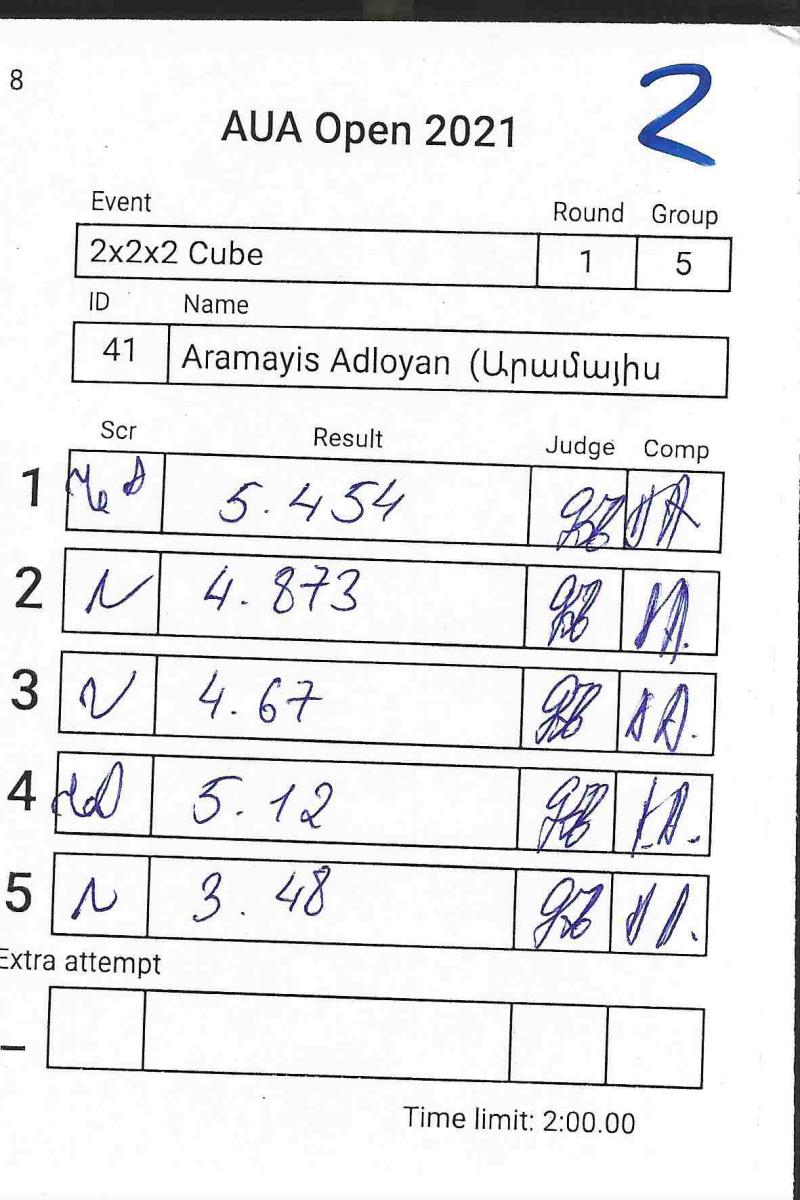 8
2
AUA Open 2021
Event Round Group
2x2x2 Cube 1 5
ID Name
41 Aramayis Adloyan (Արամայիս
Scr Result Judge Comp
1 5.454
2 4.873
3 4.67
4 5.12
5 3.48
Extra attempt
_
Time limit: 2:00.00